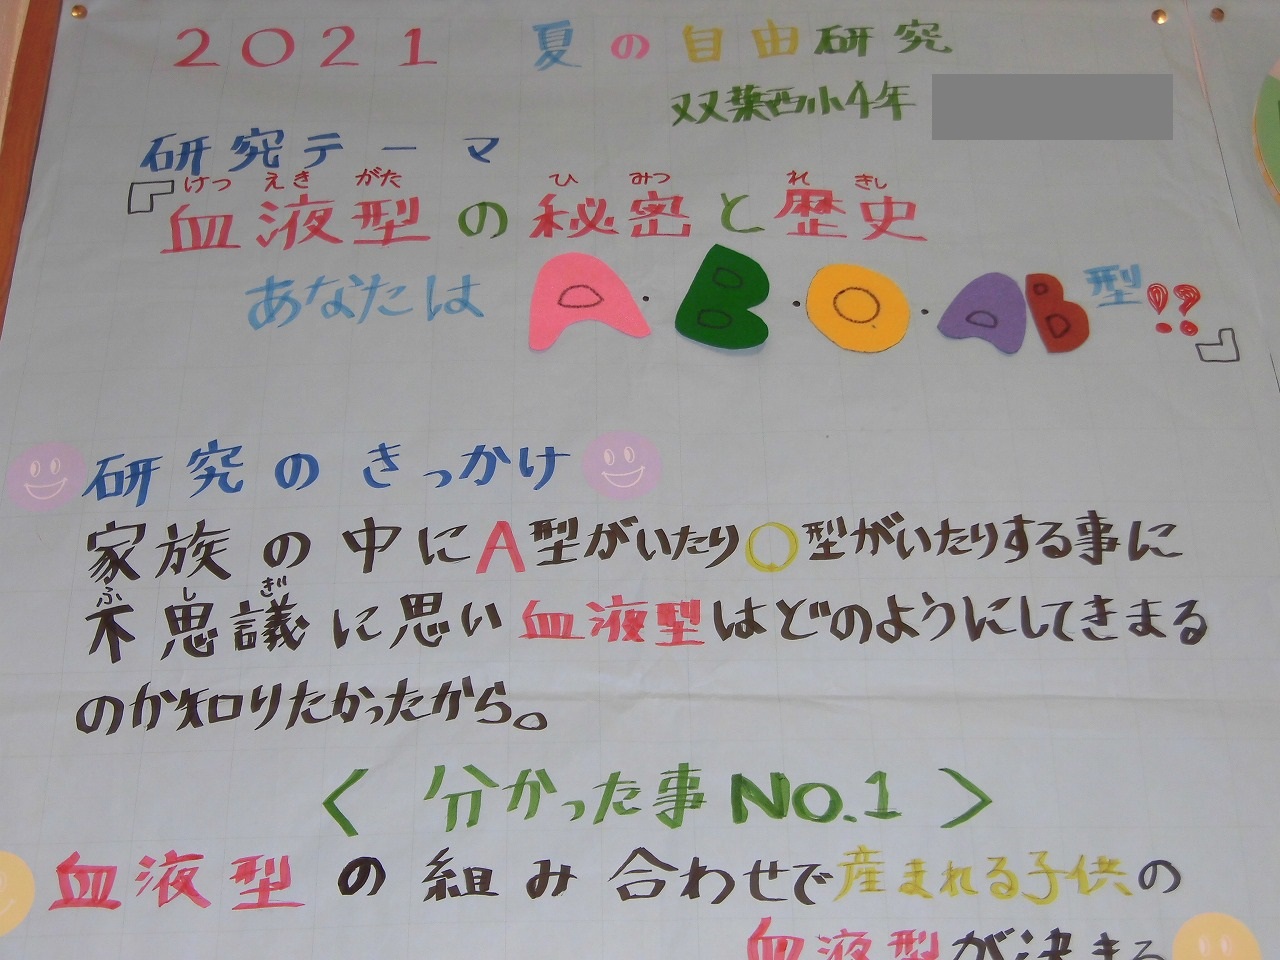 2021 夏の自由研究
双葉西小4年
研究テーマ
けつ えき がた ひ みつ れ きし
『血液型の秘密と歴史
あなたはA・B・O・AB型!?』
研究のきっかけ
家族の中にA型がいたりO型がいたりする事に
ふ し ぎ
不思議に思い血液型はどのようにしてきまる
のか知りたかったから。
〈分かった事No.1〉
血液型の組み合わせで産まれる子供の
血液型が決まる